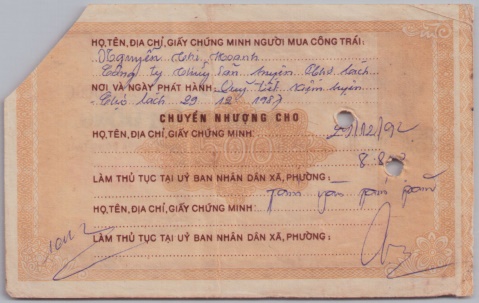 HỌ, TÊN, ĐỊA CHỈ, GIẤY CHỨNG MINH NGƯỜI MUA CÔNG TRÁI:
Nguyễn Thị Hoành
Công ty Thủy Sản huyện Chợ Lách
NƠI VÀ NGÀY PHÁT HÀNH: Quỹ Tiết Kiệm huyện
Chợ Lách 29 12 1987
CHUYỂN NHƯỢNG CHO
HỌ, TÊN, ĐỊA CHỈ, GIẤY CHỨNG MINH: 29/12/92
500
LÀM THỦ TỤC TẠI UỶ BAN NHÂN DÂN XÃ, PHƯỜNG:
Tám
HỌ, TÊN, ĐỊA CHỈ, GIẤY CHỨNG MINH:
LÀM THỦ TỤC TẠI UỶ BAN NHÂN DÂN XÃ, PHƯỜNG: